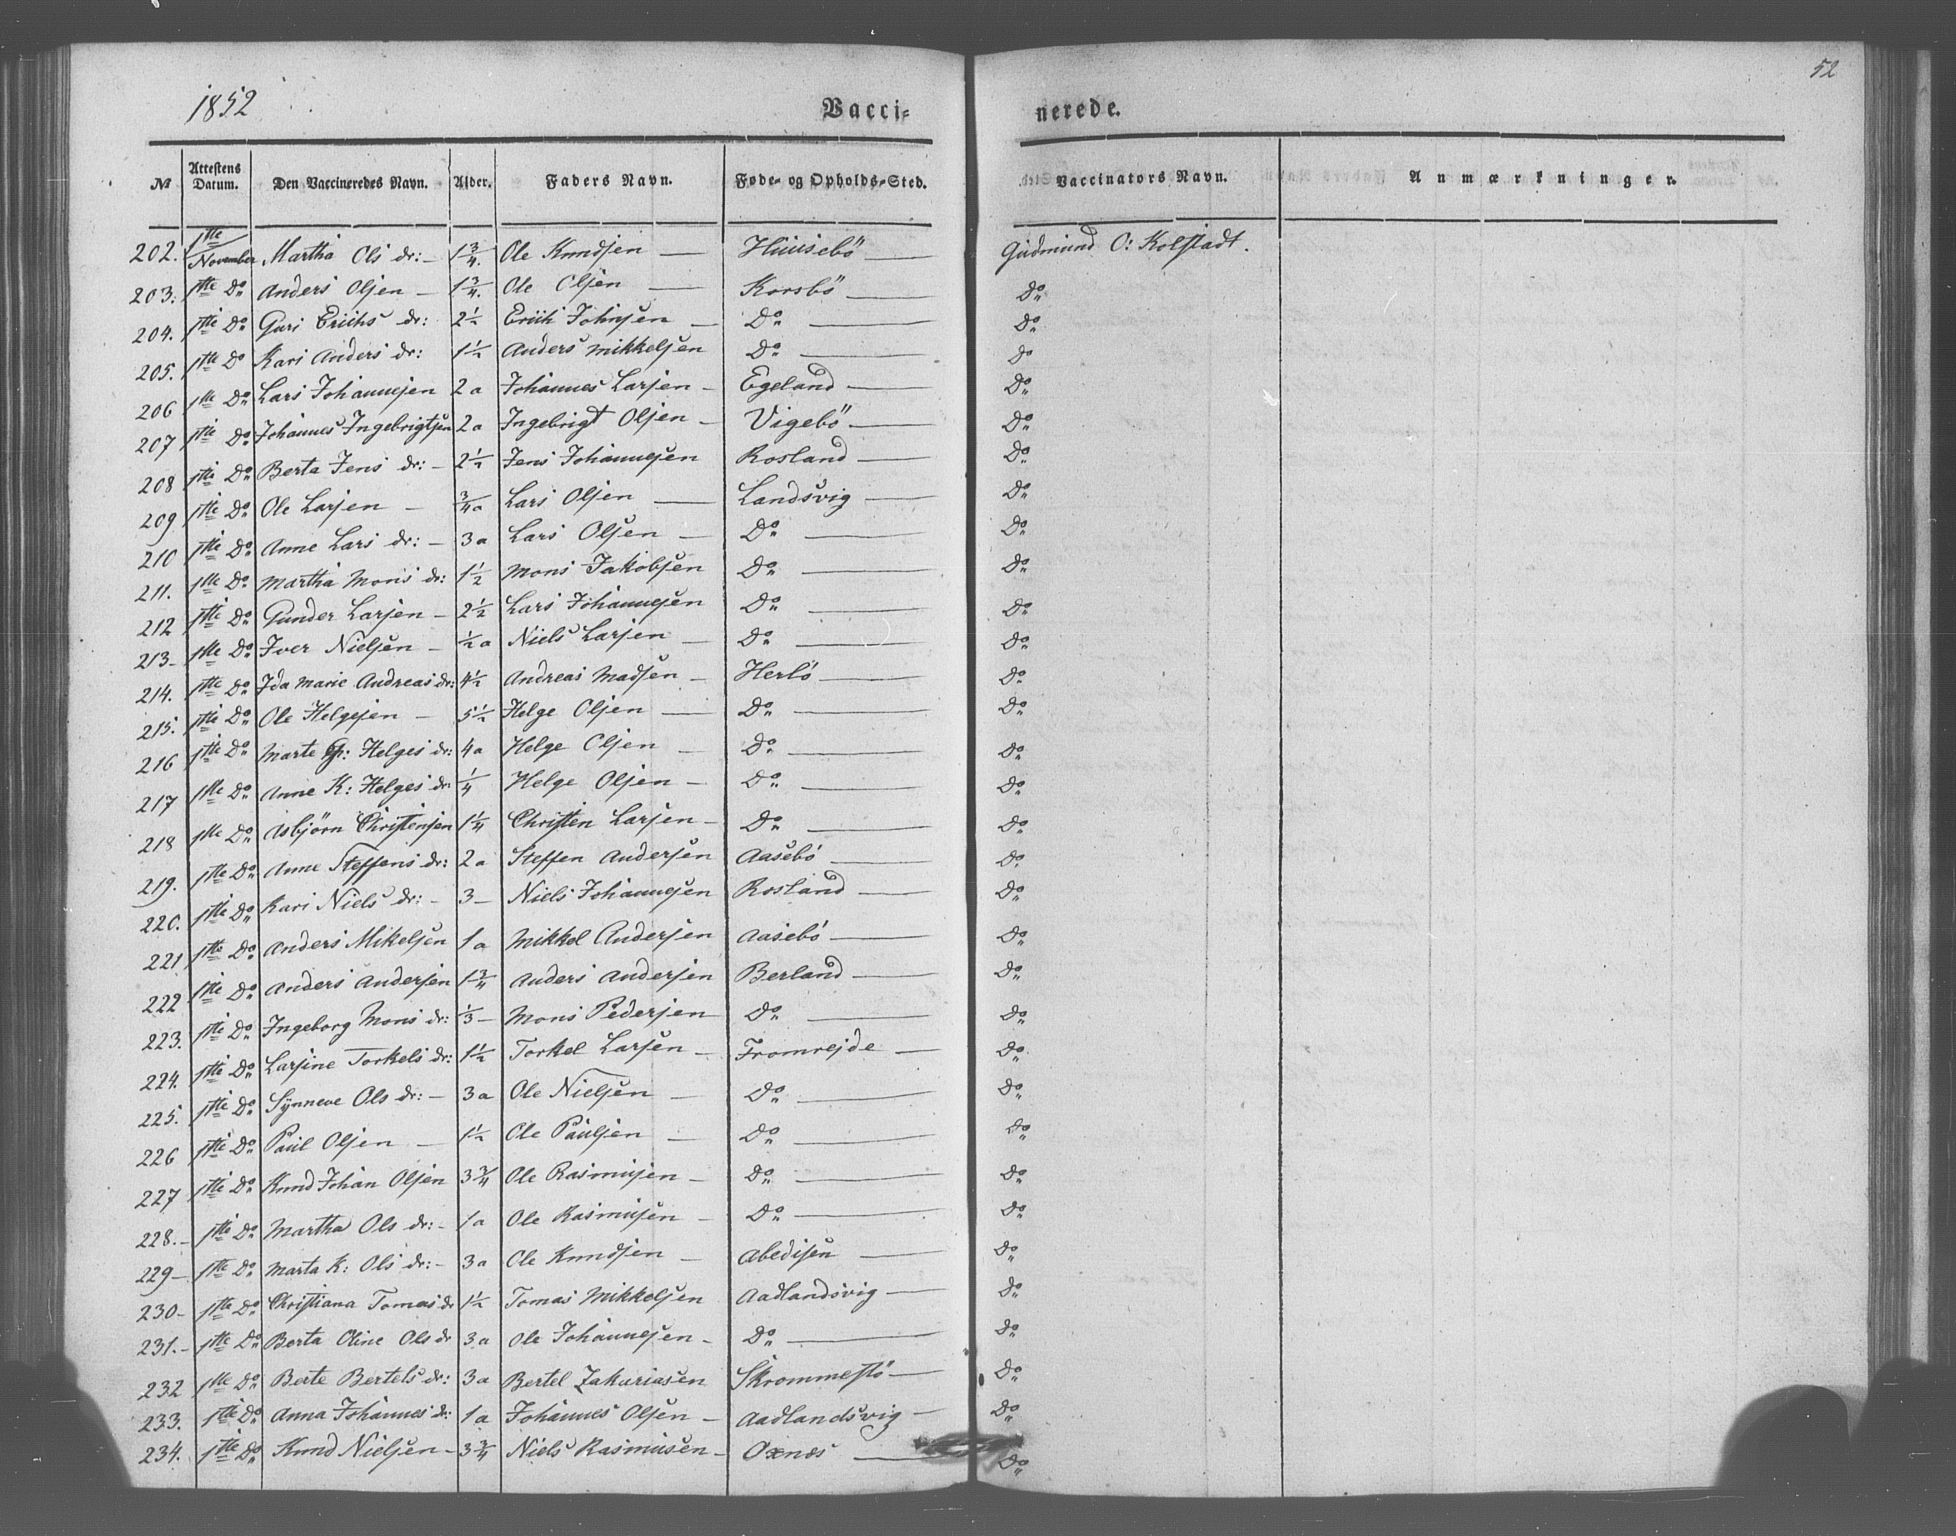 1852
52
Vacci-
nerede.
No
Attestens Datum.
Den Vaccineredes Navn.
Alder.
Faders Navn.
Føde- og Opholds-Sted.
Vaccinators Navn.
Anmærkninger.
202. 1ste November Martha Ols dr: 1 3/4. Ole Knudsen Huusebö Gudmund O: Kolstadt.
203. 1ste Do Anders Olsen 1 3/4. Ole Olsen Korsbö Do
204. 1ste Do Guri Eriihs dr: 2 1/2 Eriik Johnsen Do Do
205. 1ste Do Kari Anders dr: 1 1/2 Anders Mikkelsen Do Do
206 1ste Do Lars Johannesen 2 a Johannes Larsen Egeland Do
207 1ste Do Johannes Ingebrigtsen 2 a Ingebrigt Olsen Vigebö Do
208 1ste Do Berta Jens dr: 2 1/2 Jens Johannesen Rosland Do
209 1ste Do Ole Larsen 3/4 a Lars Olsen Landsvig Do
210 1ste Do Anne Lars dr: 3 a Lars Olsen Do Do
211. 1ste Do Martha Mons dr: 1 1/2 Mons Jakobsen Do Do
212 1ste Do Gunder Larsen 2 1/2 Lars Johannesen Do Do
213 1ste Do Iver Nielsen 1/2 a Niels Larsen Do Do
214. 1ste Do Ida Marie Andreas dr: 4 1/2 Andreas Madsen Herlö Do
215. 1ste Do Ole Helgesen 5 1/2 Helge Olsen Do Do
216 1ste Do Marte Gr: Helges dr: 4 a Helge Olsen Do Do
217 1ste Do Anne K: Helges dr 1/4 Helge Olsen Do Do
218 1ste Do Asbjörn Christensen 1 1/4 Christen Larsen Do Do
219. 1ste Do Anne Steffens dr: 2 a Steffen Andersen Aasebö Do
220. 1ste Do Kari Niels dr: 3 Niels Johannesen Rosland Do
221 1ste Do Anders Mikelsen 1 a Mikkel Andersen Aasebö Do
222 1ste Do Anders Andersen 1 3/4 Anders Andersen Berland Do
223. 1ste Do Ingeborg Mons dr: 1/3 Mons Pedersen Do Do
224. 1ste Do Larsine Torkels dr: 1 1/2 Torkel Larsen Fromrejde Do
225. 1ste Do Synneve Ols dr: 3 a Ole Nielsen Do Do
226 1ste Do Paul Olsen 1 1/2 Ole Paulsen Do Do
227 1ste Do Knud Johan Olsen 3 3/4 Ole Rasmusen Do Do
228. 1ste Do Martha Ols dr: 1 a Ole Rasmusen Do Do
229 1ste Do Marta K: Ols dr: 3 a Ole Knudsen Abedisen Do
230 1ste Do Christiana Tomas dr 1 1/2 Tomas Mikkelsen Aadlandsvig Do
231. 1ste Do Berta Oline Ols dr 3 a Ole Johannesen Do Do
232 1ste Do Berte Bertels dr: 3 a Bertel Zakariasen Skrommestö Do
233. 1ste Do Anna Johannes dr: 1 a Johannes Olsen Aadlandsvig Do
234. 1ste Do Knud Nielsen 3 3/4 Niels Rasmusen Oxnæs Do